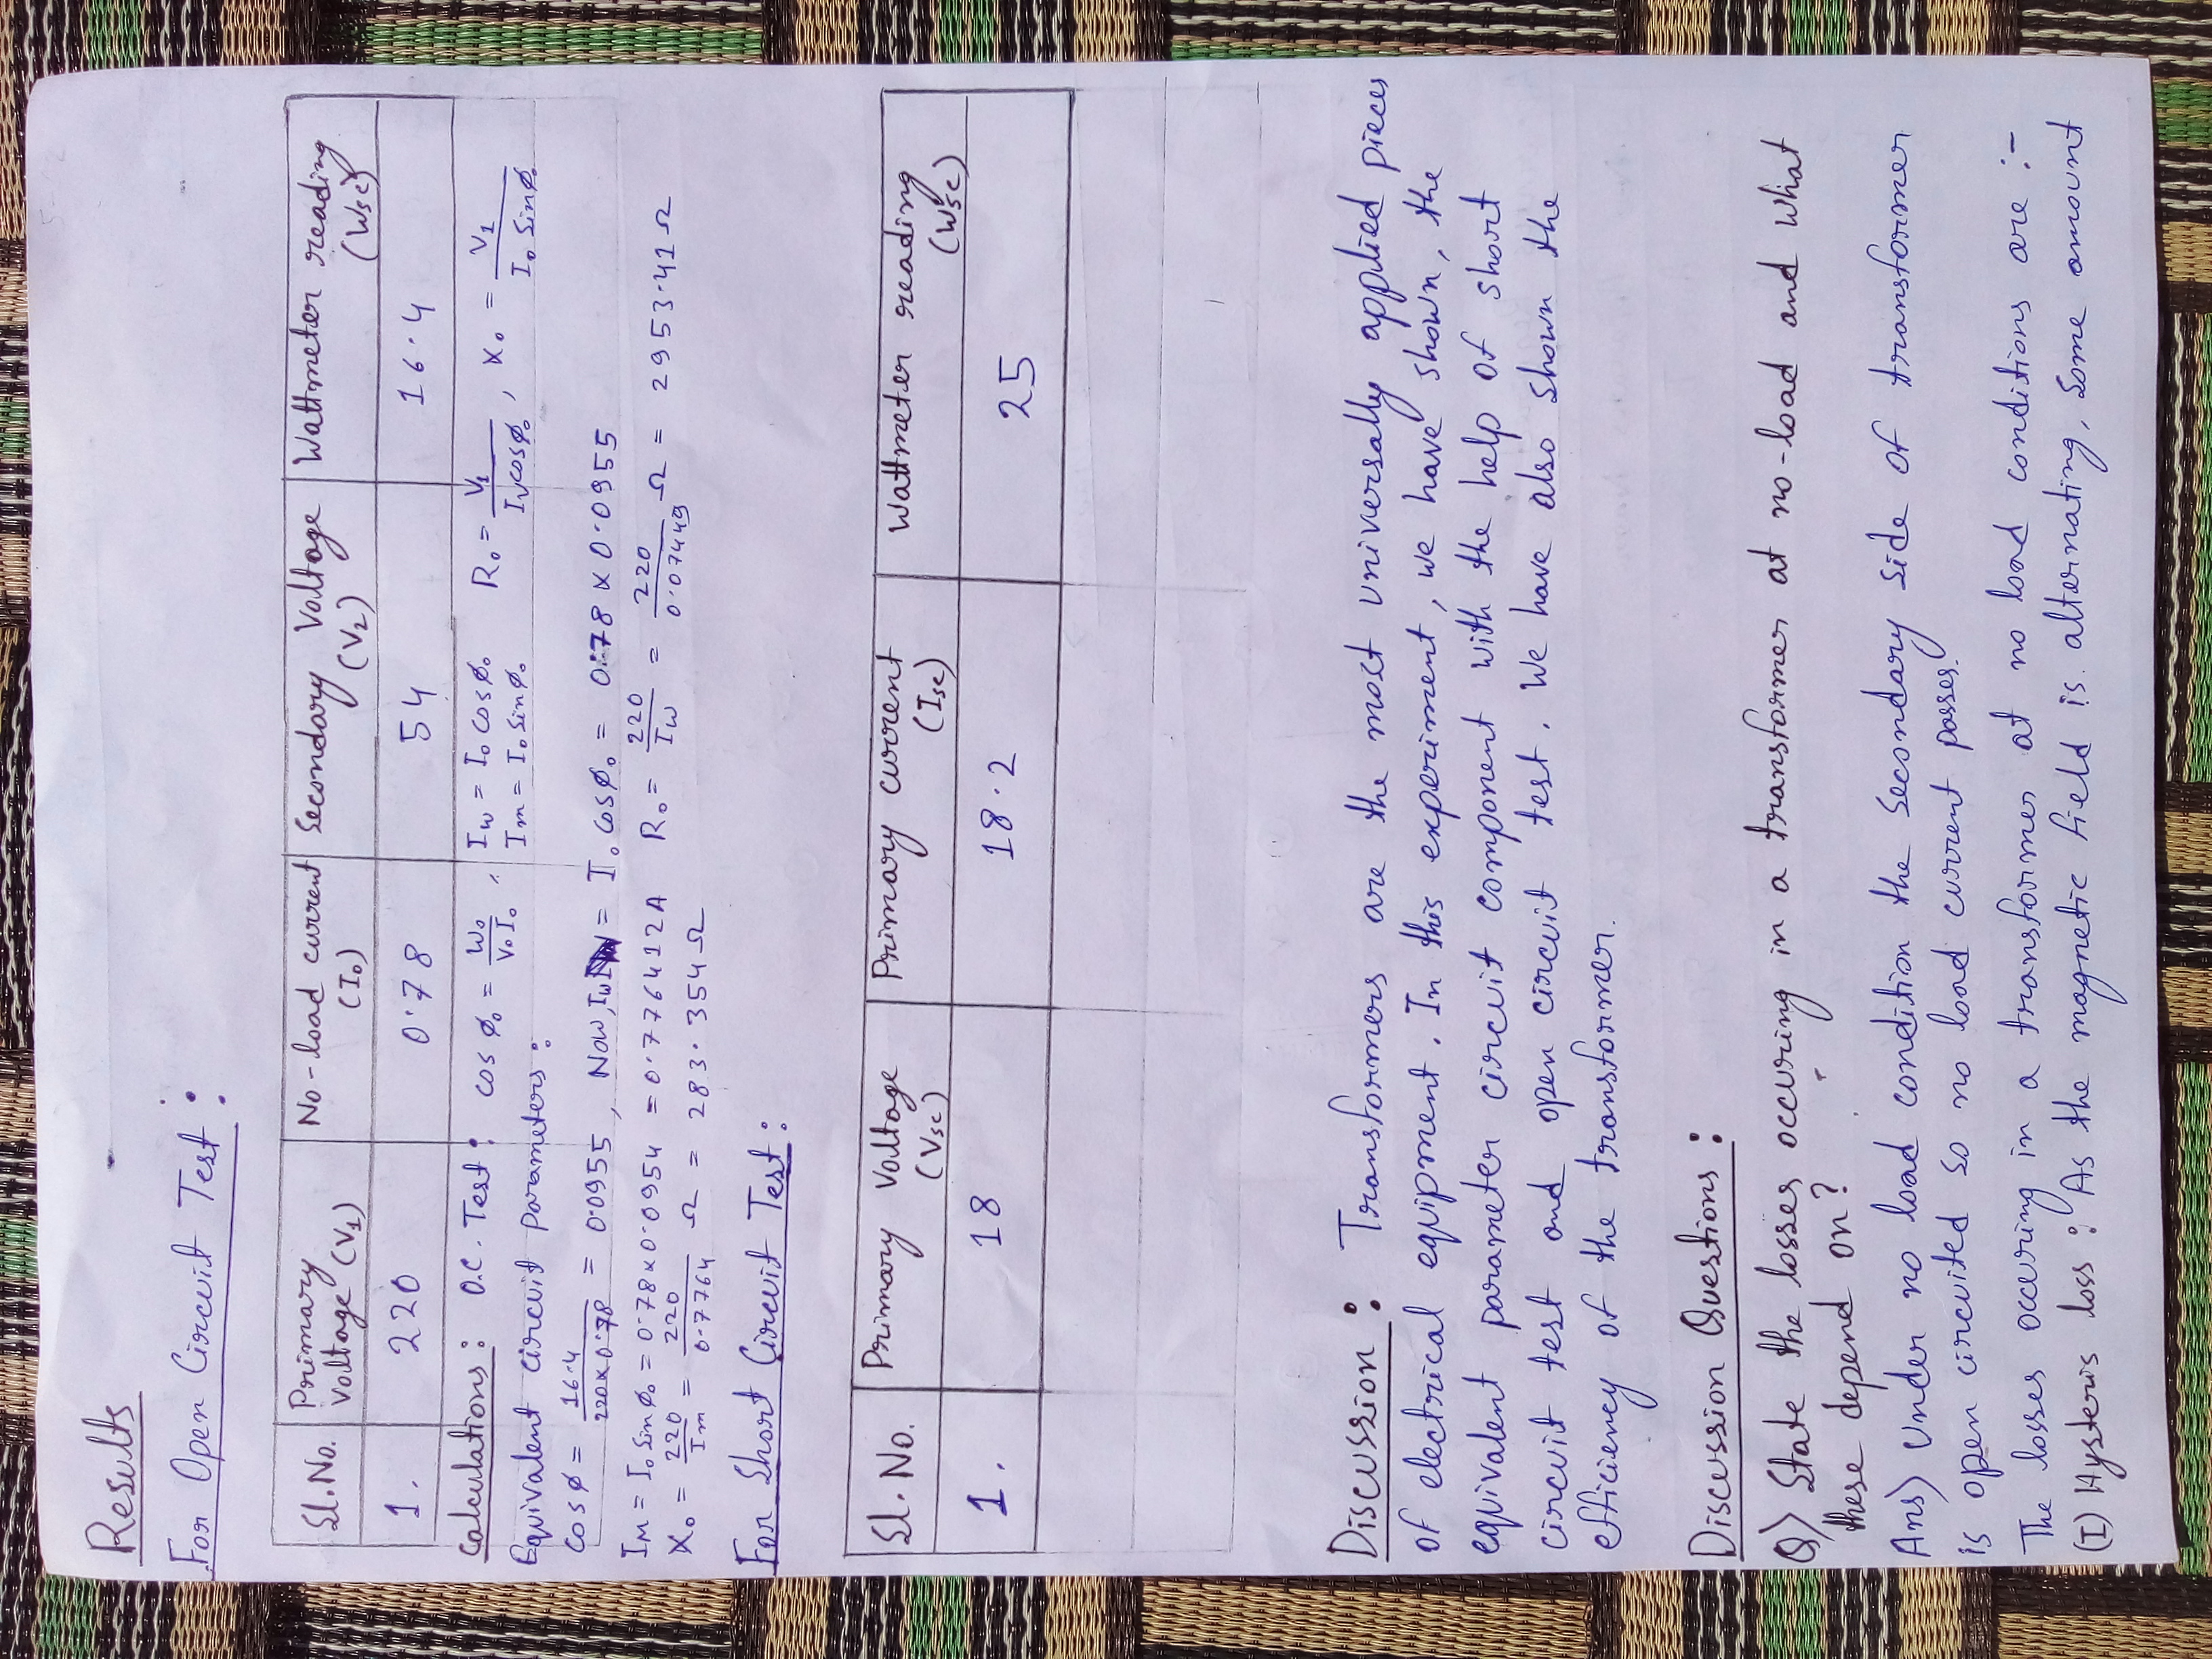 Results
For Open Circuit Test:
Sl.No. Primary Voltage (V1) No-load current (Io) Secondary Voltage (V2) Wattmeter reading (Wsc)
1. 220 0.78 54 16.4
Calculations: O.C. Test: cos φo = Wo/VoIo, Iw = Io cosφo Im = Io Sinφo Ro = V1/Ivcosφo, Xo = V1/Io Sinφo
Equivalent circuit parameters:
cosφ = 16.4/220×0.78 = 0.0955, Now, Iw = Io cosφo = 0.78 × 0.0955
IM = Io Sinφo = 0.78×0.0954 = 0.776412A Ro = 220/Iw = 220/0.07449 Ω = 2953.41Ω
Xo = 220/Im = 220/0.7764 Ω = 283.354Ω
For Short Circuit Test:
Sl. No. Primary Voltage (Vsc) Primary current (Isc) Wattmeter reading (Wsc)
1. 18 18.2 25
Discussion: Transformers are the most universally applied pieces
of electrical equipment. In this experiment, we have shown, the
equivalent parameter circuit component with the help of short
circuit test and open circuit test. We have also shown the
efficiency of the transformer.
Discussion Questions:
Q) State the losses occuring in a transformer at no-load and what
these depend on?
Ans) Under no load condition the secondary side of transformer
is open circuited so no load current passes.
The losses occuring in a transformer at no load conditions are :-
(I) Hysteris loss: As the magnetic field is alternating, some amount